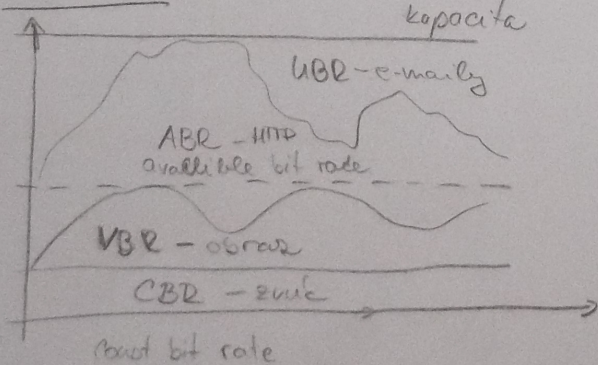 kapacita
UBR - e-maily
ABR - HTTP
availible bit rate
VBR - obraz
CBR - zvuk
const bit rate